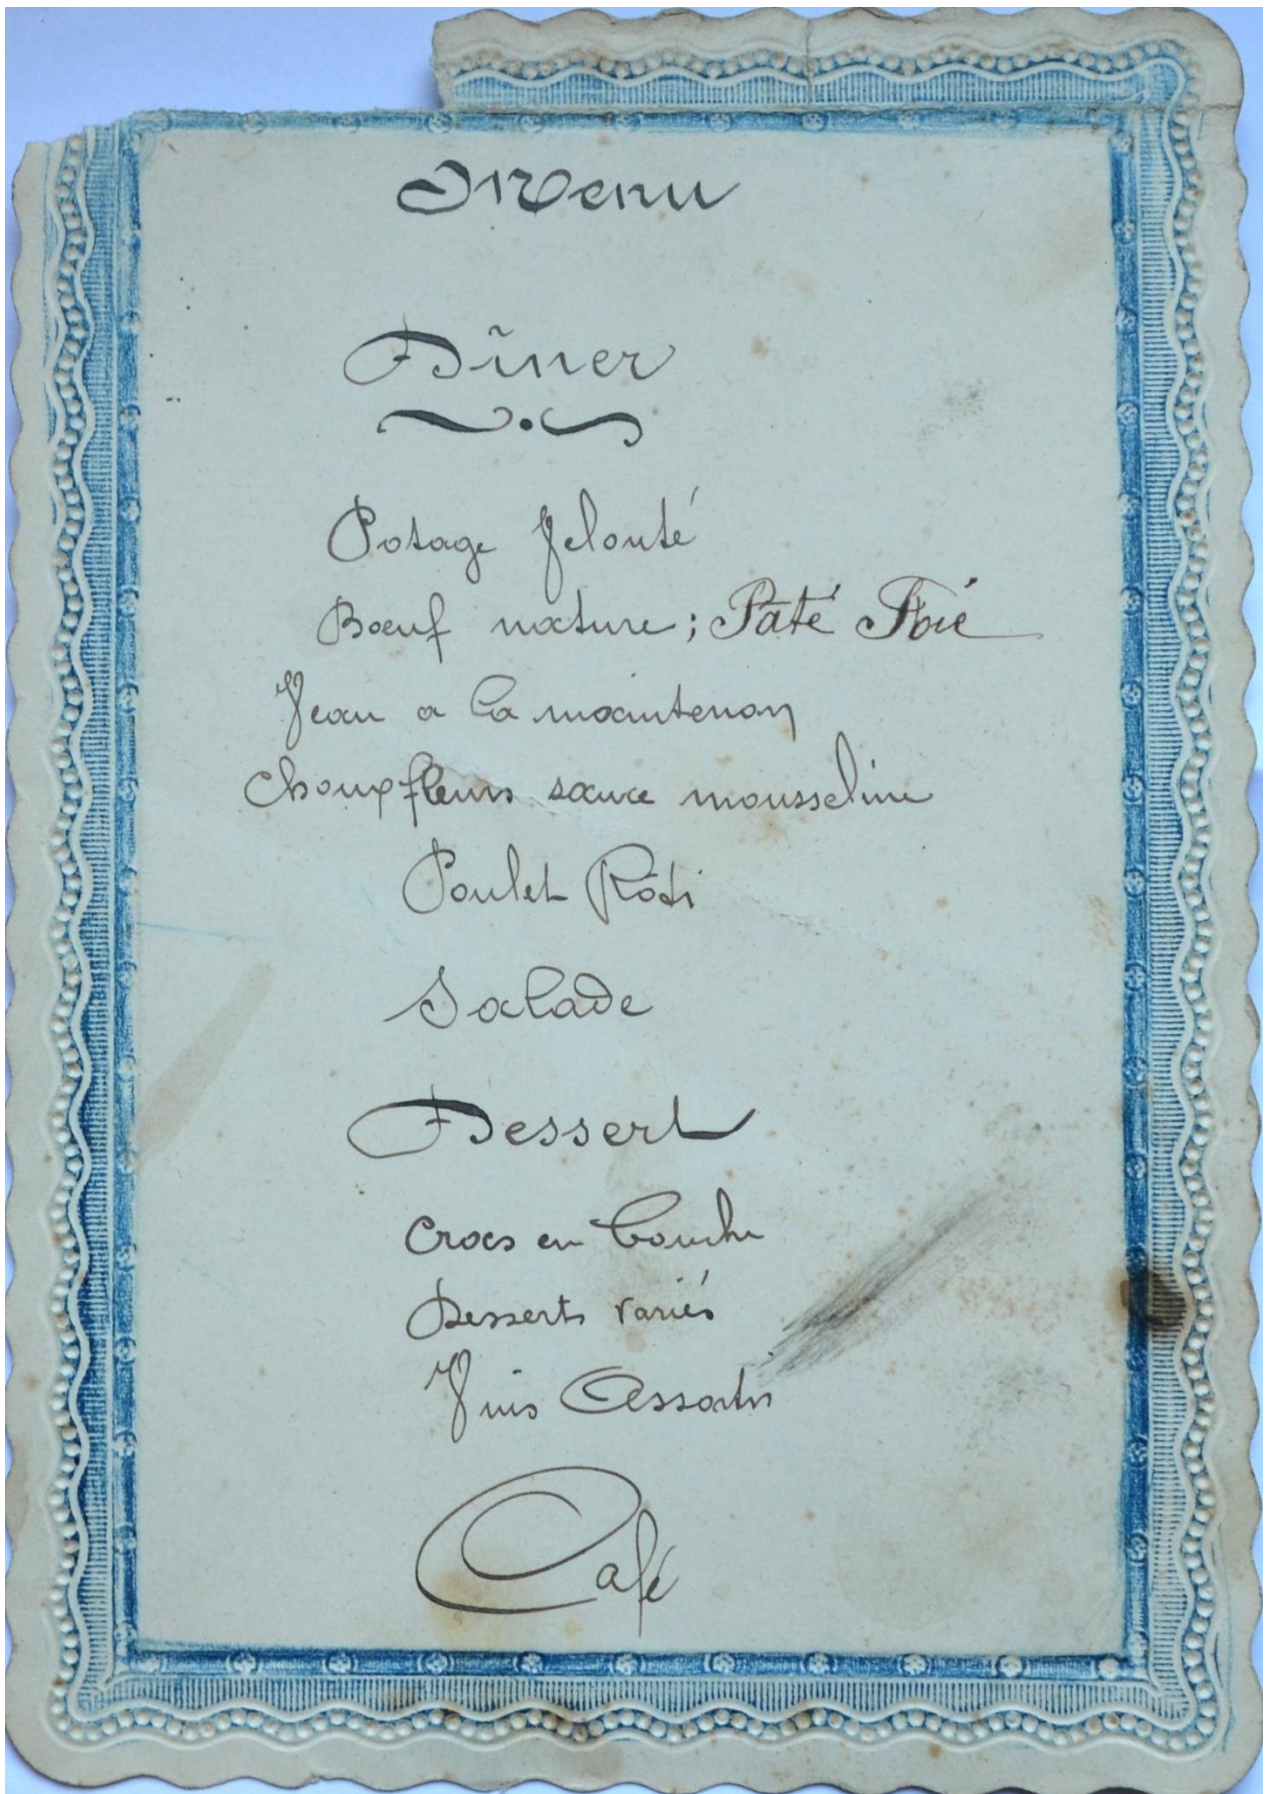 Menu
Dîner
Potage Velouté
Bœuf nature ; Pâté Foie
Veau a la maintenon
Chouxfleurs sauce mousseline
Poulet Rôti
Salade
Dessert
Crocs en bouche
Desserts variés
Vins Assortis
Café